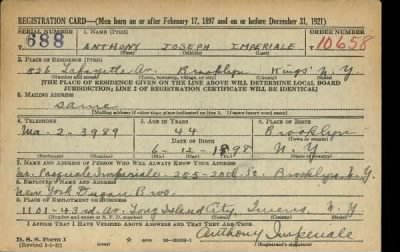 REGISTRATION CARD—(Men born on or after February 17, 1897 and on or before December 31, 1921)
SERIAL NUMBER 1. NAME (Print) ORDER NUMBER
688 ANTHONY JOSEPH IMPERIALE 10658
(First) (Middle) (Last)
2. PLACE OF RESIDENCE (Print)
526 Lafayette Av. Brooklyn Kings N. Y.
(Number and street) (Town, township, village, or city) (County) (State)
[THE PLACE OF RESIDENCE GIVEN ON THE LINE ABOVE WILL DETERMINE LOCAL BOARD
JURISDICTION; LINE 2 OF REGISTRATION CERTIFICATE WILL BE IDENTICAL]
3. MAILING ADDRESS
same
[Mailing address if other than place indicated on line 2. If same insert word same]
4. TELEPHONE 5. AGE IN YEARS 6. PLACE OF BIRTH
44 Brooklyn
Ma. 2-3989 DATE OF BIRTH
6-12-1898 N. Y.
7. NAME AND ADDRESS OF PERSON WHO WILL ALWAYS KNOW YOUR ADDRESS
Pasquale Imperiale - 255-20th St. Brooklyn N.Y.
8. EMPLOYER'S NAME AND ADDRESS
New York Dugan Bros.
9. PLACE OF EMPLOYMENT OR BUSINESS
1101-43rd Av. Long Island City, Queens N. Y.
I AFFIRM THAT I HAVE VERIFIED ABOVE ANSWERS AND THAT THEY ARE TRUE.
D. S. S. Form 1 Anthony Imperiale
(Registrant's signature)